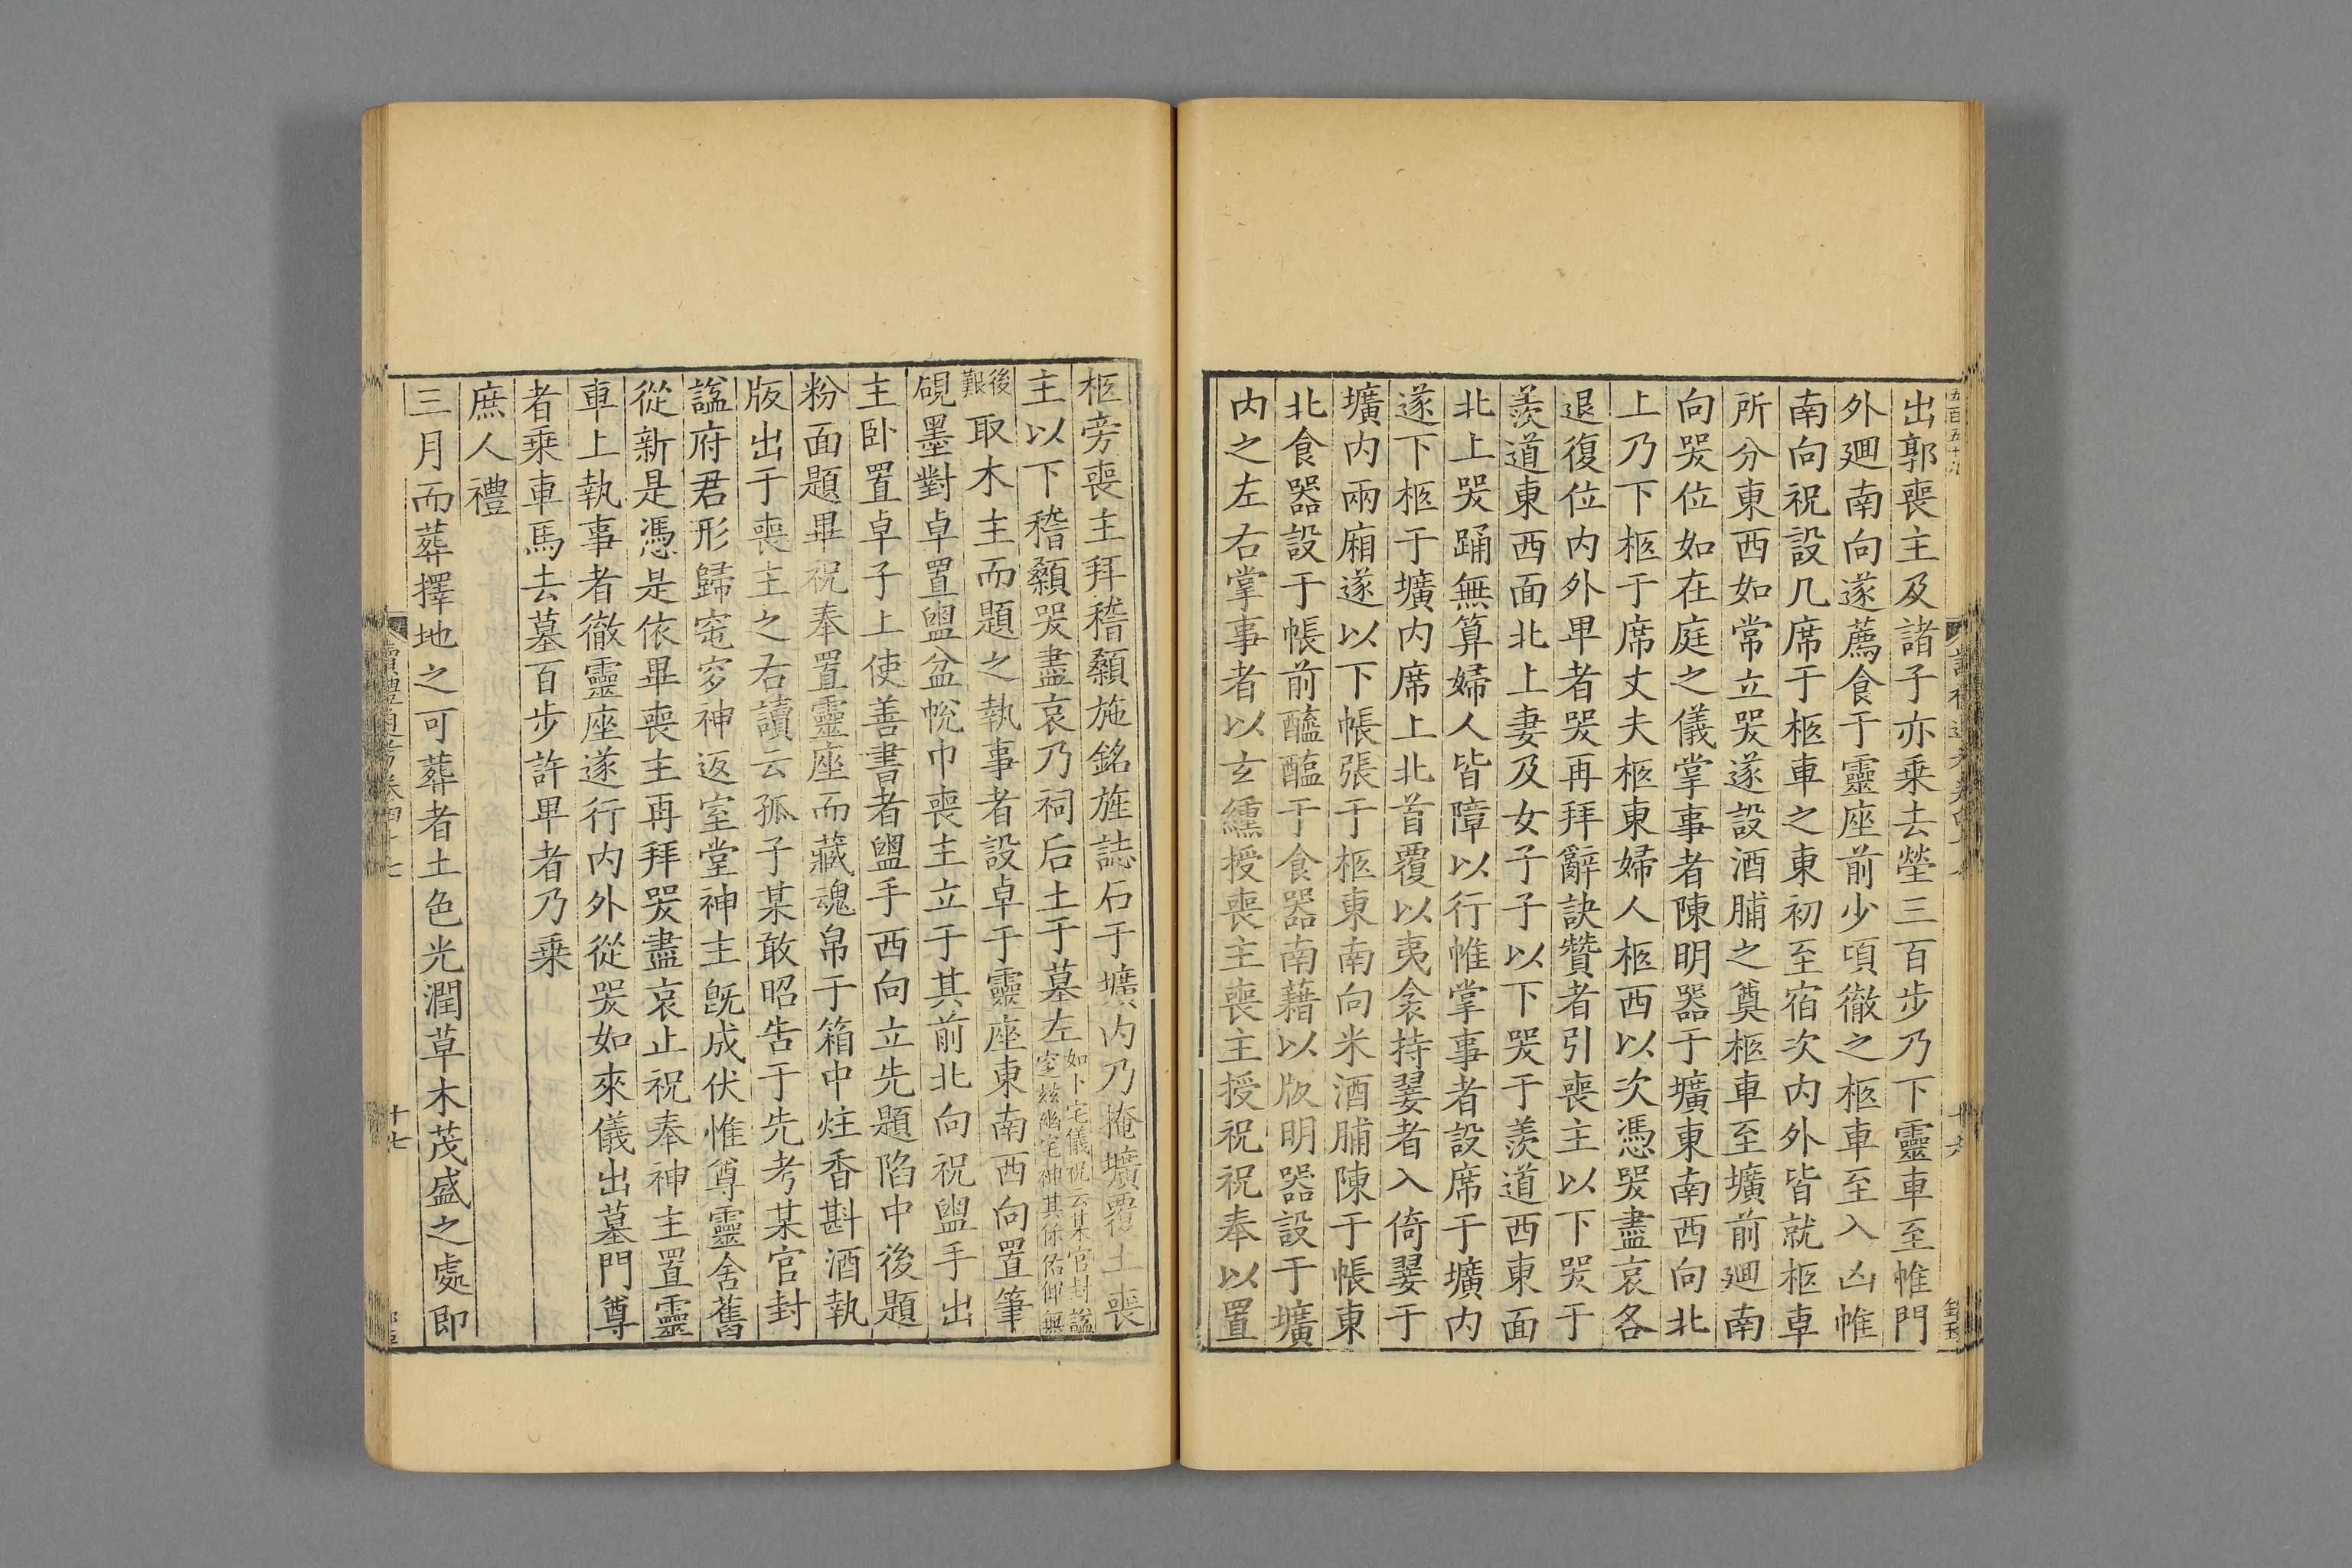 出郭喪主及諸子亦乗去塋三百步乃下靈車至帷門
外廻南向遂薦食于靈座前少頃徹之柩車至入凶帷
南向祝設几席于柩車之東初至宿次内外皆就柩車
所分東西如常立哭遂設酒脯之奠柩車至壙前廻南
向哭位如在庭之儀掌事者陳明器于壙東南西向北
上乃下柩于席丈夫柩東婦人柩西以次憑哭盡哀各
退復位内外卑者哭再拜辭訣贊者引喪主以下哭于
羨道東西面北上妻及女子子以下哭于羨道西東面
北上哭踊無算婦人皆障以行帷掌事者設席于壙内
遂下柩于壙内席上北首覆以夷衾持翣者入倚翣于
壙内兩廂遂以下帳張于柩東南向米酒脯陳于帳東
北食器設于帳前醯醢于食器南藉以版明器設于壙
内之左右掌事者以玄纁授喪主喪主授祝祝奉以置
柩旁喪主拜稽顙施銘旌誌石于壙内乃掩壙覆土喪
主以下稽顙哭盡哀乃祠后土于墓左如卜宅儀祝云某官封謚
窆兹幽宅神其保佑俾無
後
艱取木主而題之執事者設卓于靈座東南西向置筆
硯墨對卓置盥盆帨巾喪主立于其前北向祝盥手出
主卧置卓子上使善書者盥手西向立先題陷中後題
粉面題畢祝奉置靈座而藏魂帛于箱中炷香斟酒執
版出于喪主之右讀云孤子某敢昭告于先考某官封
謚府君形歸窀穸神返室堂神主既成伏惟尊靈舍舊
從新是憑是依畢喪主再拜哭盡哀止祝奉神主置靈
車上執事者徹靈座遂行内外從哭如來儀出墓門尊
者乗車馬去墓百步許卑者乃乗
庶人禮
三月而葬擇地之可葬者土色光潤草木茂盛之處即
十七